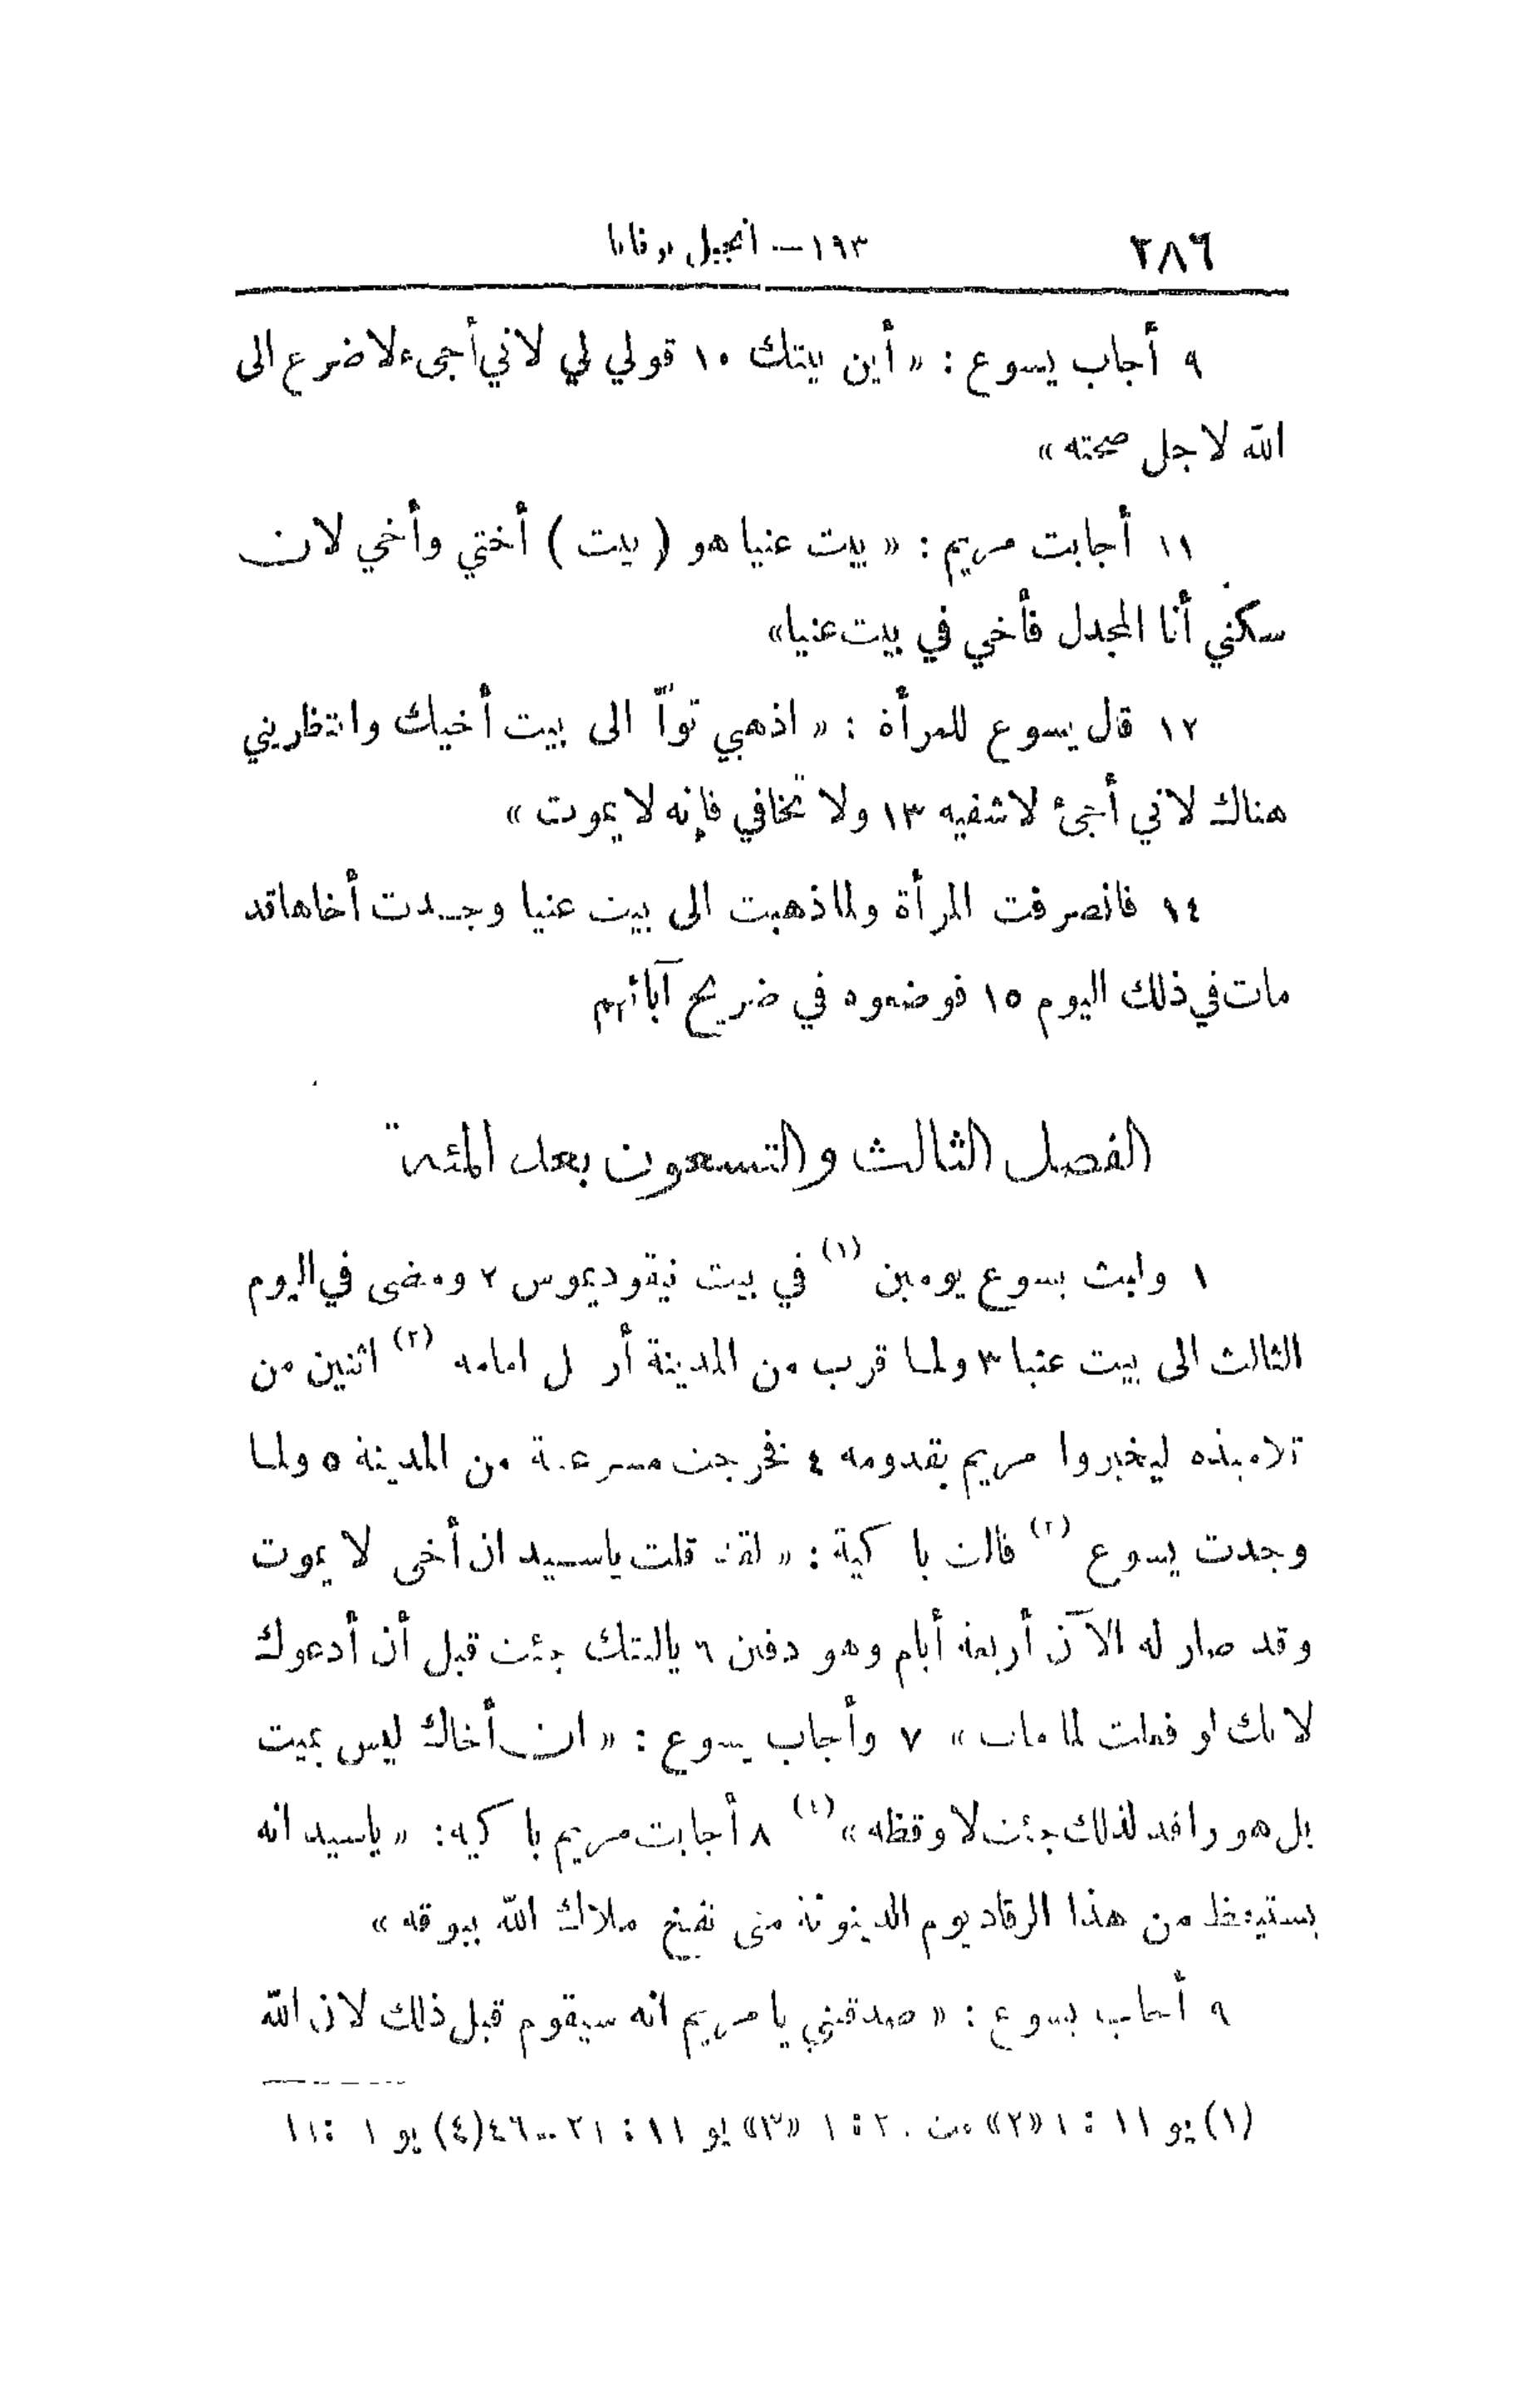 ٢٨٦ ١٩٣ – انجيل برنابا
٩ أجاب يسوع : « أين بيتك ١٠ قولي لي لاني أجيء لاضرع الى
الله لاجل صحته »
١١ أجابت مريم : « بيت عنيا هو ( بيت ) أختي وأخي لان
سكني أنا المجدل فأخي في بيت عنيا»
١٢ قال يسوع للمرأة : « اذهبي تواّ الى بيت أخيك وانتظريني
هناك لاني أجئ لاشفيه ١٣ ولا تخافي فإنه لا يموت »
١٤ فانصرفت المرأة ولما ذهبت الى بيت عنيا وجدت أخاها قد
مات في ذلك اليوم ١٥ فوضعوه في ضريح آبائهم
الفصل الثالث والتسعون بعد المئة
١ ولبث يسوع يومين (١) في بيت نيقوديموس ٢ ومضى في اليوم
الثالث الى بيت عنيا ٣ ولما قرب من المدينة أرسل امامه (٢) اثنين من
تلاميذه ليخبروا مريم بقدومه ٤ فخرجت مسرعة من المدينة ٥ ولما
وجدت يسوع (٣) قالت باكية : « لقد قلت ياسيد ان أخي لا يموت
وقد صار له الآن أربعة أيام وهو دفين ٦ ياليتك جئت قبل أن أدعوك
لانك لو فعلت لما مات » ٧ وأجاب يسوع : « ان أخاك ليس بميت
بل هو راقد لذلك جئت لاوقظه » (٤) ٨ أجابت مريم باكيه : « ياسيد انه
يستيقظ من هذا الرقاد يوم الدينونة متى نفخ ملاك الله ببوقه »
٩ أجاب يسوع : « صدقيني يا مريم انه سيقوم قبل ذلك لان الله
(١) يو ١١ : ١ «٢» مت ٢٠ : ١ «٣» يو ١١ : ٢١ – ٤٦ (٤) يو ١ : ١١